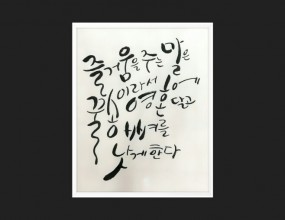 즐거움을 주는 말은
꿀송이라서 영혼에 달고
뼈를
낫게 한다